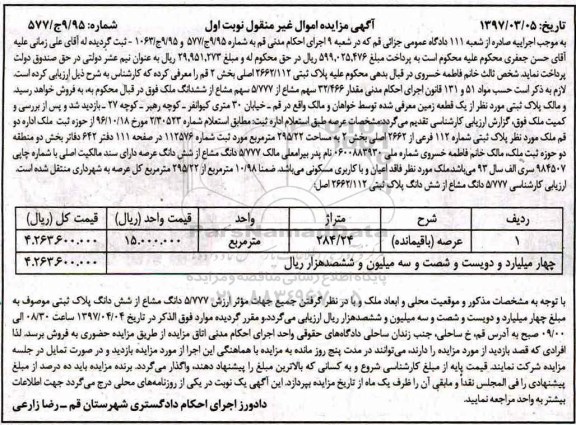 تاریخ: ۱۳۹۷/۰۳/۰۵ آگهی مزایده اموال غیر منقول نوبت اول شماره: ۵۷۷ج/۹/۹۵
به موجب اجراییه صادره از شعبه ۱۱۱ دادگاه عمومی جزائی قم که در شعبه ۹ اجرای احکام مدنی قم به شماره ۵۷۷ج/۹/۹۵ و ۱۰۶۳ج/۹/۹۵ - ثبت گردیده له آقای علی زمانی علیه
آقای حسن جعفری محکوم علیه محکوم است به پرداخت مبلغ ۵۹۹.۰۲۵.۴۷۶ ریال در حق محکوم له و مبلغ ۲۹,۹۵۱,۲۷۳ ریال به عنوان نیم عشر دولتی در حق صندوق دولت
پرداخت نماید. شخص ثالث خانم فاطمه خسروی در قبال بدهی محکوم علیه پلاک ثبتی ۲۶۶۲/۱۱۲ اصلی بخش ۲ قم را معرفی کرده که کارشناس به شرح ذیل ارزیابی کرده است.
لازم به ذکر است حسب مواد ۵۱ و ۱۳۱ قانون اجرای احکام مدنی مقدار ۳۲/۴۶۶ سهم مشاع از ۵/۷۷۷ سهم مشاع از ششدانگ ملک فوق در قبال محکوم به، به فروش خواهد رسید.
و مالک پلاک ثبتی مورد نظر از یک قطعه زمین معرفی شده توسط خواهان و مالک واقع در قم - خیابان ۳۰ متری کیوانفر - کوچه رهبر - کوچه ۲۷ - بازدید شد و پس از بررسی و
کمیت ملک فوق، گزارش ارزیابی کارشناسی تقدیم می گردد: مشخصات عرصه طبق استعلام اداره ثبت: مطابق استعلام شماره ۲/۳۰۵۲۳ مورخ ۹۶/۱۰/۱۸ از حوزه ثبت ملک اداره دو
قم ملک مورد نظر پلاک ثبتی شماره ۱۱۲ فرعی از ۲۶۶۲ اصلی بخش ۲ به مساحت ۲۹۵/۲۲ مترمربع مورد ثبت شماره ۱۱۲۵۷۶ در صفحه ۱۱۱ دفتر ۶۴۲ دفاتر بخش دو منطقه
دو حوزه ثبت ملک، مالک خانم فاطمه خسروی شماره ملی نام پدر بیرامعلی مالک ۵/۷۷۷ دانگ مشاع از شش دانگ عرصه دارای سند مالکیت اصلی با شماره چاپی
۹۸۴۵۰۷ سری الف سال ۹۳ می‌باشد.ملک مورد نظر فاقد اعیان و با کاربری مسکونی می‌باشد. ضمنا ۱۰/۹۸ مترمربع از ۲۹۵/۲۲ مترمربع کل عرصه به شهرداری منتقل شده است.
ارزیابی کارشناسی ۵/۷۷۷ دانگ مشاع از شش دانگ پلاک ثبتی ۲۶۶۲/۱۱۲ اصل:
ردیف شرح متراژ واحد قیمت واحد (ریال) قیمت کل (ریال)
۱ عرصه (باقیمانده) ۲۸۴/۲۴ مترمربع ۱۵.۰۰۰.۰۰۰ ۴.۲۶۳.۶۰۰.۰۰۰
چهار میلیارد و دویست و شصت و سه میلیون و ششصدهزار ریال ۴.۲۶۳.۶۰۰.۰۰۰
با توجه به مشخصات مذکور و موقعیت محلی و ابعاد ملک و با در نظر گرفتن جمیع جهات مؤثر ارزش ۵/۷۷۷ دانگ مشاع از شش دانگ پلاک ثبتی موصوف به
مبلغ چهار میلیارد و دویست و شصت و سه میلیون و ششصدهزار ریال ارزیابی می‌گردد.و مقرر گردیده موارد فوق الذکر در تاریخ ۱۳۹۷/۰۴/۰۴ ساعت ۰۸/۳۰ الی
۰۹/۰۰ صبح به آدرس قم، خ ساحلی، جنب زندان ساحلی دادگاه‌های حقوقی واحد اجرای احکام مدنی اتاق مزایده از طریق مزایده حضوری به فروش برسد. لذا
افرادی که قصد بازدید از مورد مزایده را دارند، می‌توانند در مدت پنج روز مانده به مزایده با هماهنگی این اجرا از مورد مزایده بازدید و در صورت تمایل در جلسه
مزایده شرکت نمایند. قیمت پایه از مبلغ کارشناسی شروع و به کسانی که بالاترین مبلغ را پیشنهاد دهند، واگذار می‌گردد. برنده مزایده باید ده درصد از مبلغ
پیشنهادی را فی المجلس نقدا و مابقی آن را ظرف یک ماه از تاریخ مزایده بپردازد. این آگهی یک نوبت در یکی از روزنامه‌های محلی درج می‌گردد جهت اطلاعات
بیشتر به واحد مراجعه نمایید.
دادورز اجرای احکام دادگستری شهرستان قم - رضا زارعی